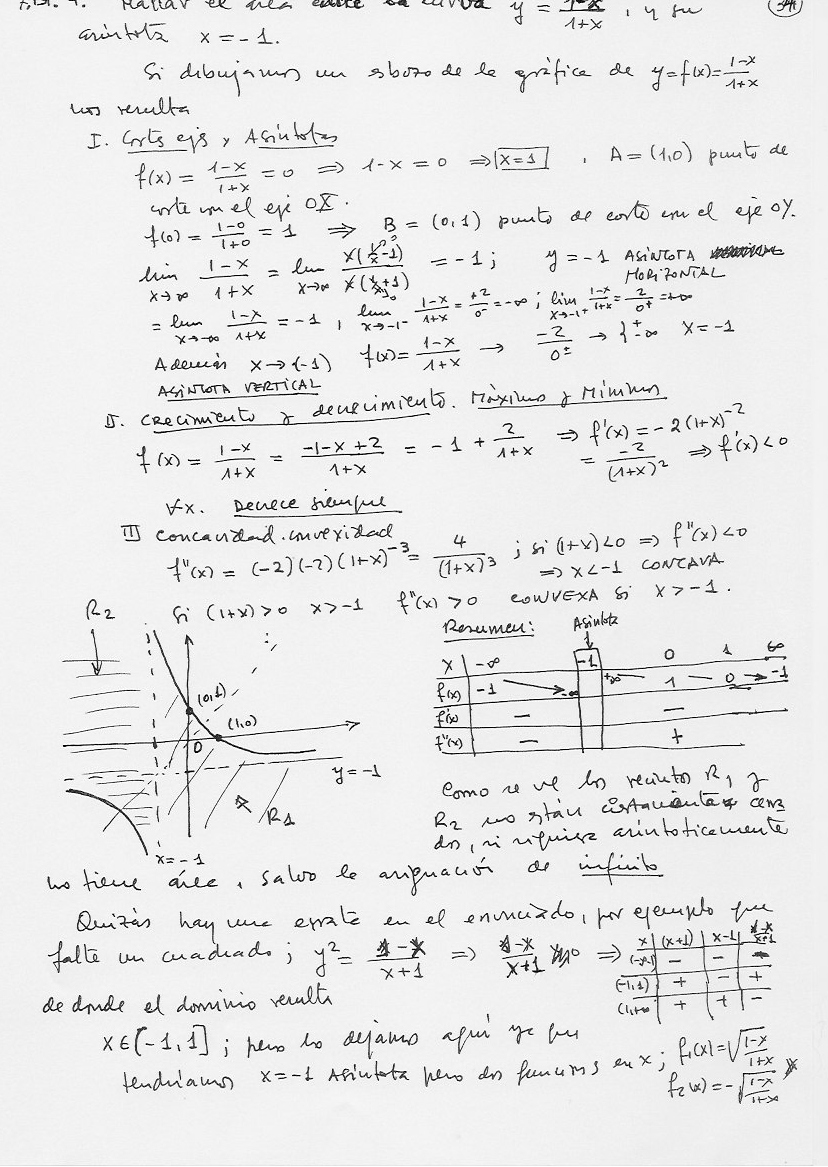 Hallar el área entre la curva y = (1-x)/(1+x), y su
asíntota x = -1.
Si dibujamos un esbozo de la gráfica de y = f(x) = (1-x)/(1+x)
nos resulta
I. Cortes ejes y Asíntotas
f(x) = (1-x)/(1+x) = 0 ⇒ 1-x = 0 ⇒ x=1 . A = (1,0) punto de
corte con el eje OX.
f(0) = (1-0)/(1+0) = 1 ⇒ B = (0,1) punto de corte con el eje OY.
lim x→∞ (1-x)/(1+x) = lim x→∞ x(1/x-1)/x(1/x+1) = -1; y = -1 ASÍNTOTA
HORIZONTAL
= lim x→-∞ (1-x)/(1+x) = -1, lim x→-1⁻ (1-x)/(1+x) = +2/0⁻ = -∞; lim x→-1⁺ (1-x)/(1+x) = 2/0⁺ = +∞
Además x→(-1) f(x) = (1-x)/(1+x) → -2/0± → {± ∞ X = -1
ASÍNTOTA VERTICAL
II. Crecimiento y decrecimiento. Máximos y Mínimos
f(x) = (1-x)/(1+x) = (-1-x+2)/(1+x) = -1 + 2/(1+x) ⇒ f'(x) = -2(1+x)⁻²
= -2/(1+x)² ⇒ f'(x) < 0
∀x. Decrece siempre
III Concavidad. convexidad
f''(x) = (-2)(-2)(1+x)⁻³ = 4/(1+x)³ ; si (1+x)<0 ⇒ f''(x)<0
⇒ x<-1 CONCAVA
Si (1+x)>0 x>-1 f''(x)>0 CONVEXA si x>-1.
R2
(0,1)
(1,0)
0
y = -1
R1
x = -1
Resumen: Asíntota
X -∞ -1 0 1 ∞
f(x) -1 → -∞ +∞ 1 0 → -1
f'(x) - -
f''(x) - +
Como se ve los recintos R1 y
R2 no están cerra
dos, ni siquiera asíntoticamente
no tiene área, salvo la asignación de infinito
Quizás hay una errata en el enunciado, por ejemplo que
falte un cuadrado; y² = (1-x)/(x+1) ⇒ (1-x)/(x+1) ⇒
x (x+1) x-1 (1-x)/(x+1)
- - -
(-1,1) + - +
(1,+∞ + + -
de donde el dominio resulta
x∈(-1,1] ; pero lo dejamos aquí ya que
tendríamos x=-1 Asíntota pero dos funciones en x; f₁(x) = √((1-x)/(1+x))
f₂(x) = -√((1-x)/(1+x))